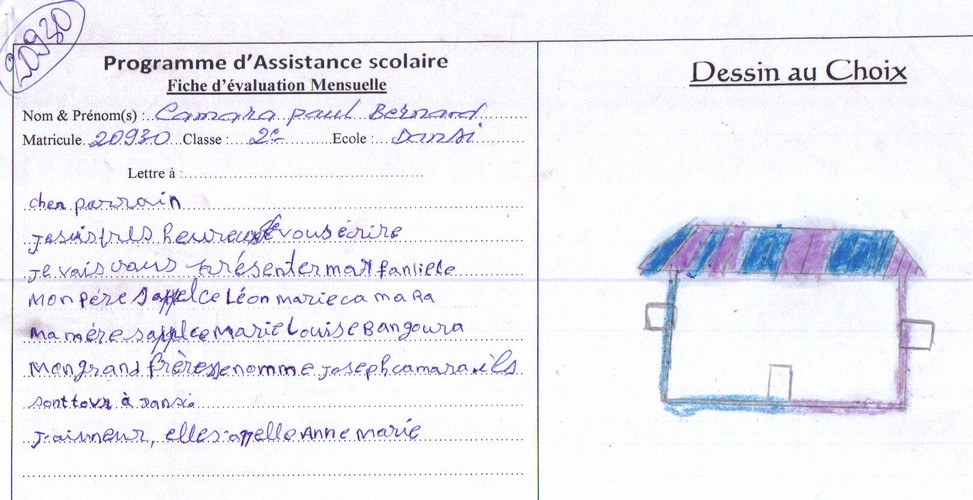 20930
Programme d'Assistance scolaire
Fiche d'évaluation Mensuelle
Nom & Prénom(s) : Camara paul Bernard
Matricule 20930 Classe : 2e Ecole : Dansi
Lettre à :
cher parrain
je suis tres heureuse de vous écrire
je vais vous présenter ma fanliele
Mon pére s'appelce Léon marie camaRa
Ma mére sapplce Marie Louise Bangoura
Mon grand frère se nomme joseph camara ils
sont tous à Dansi
j'ai uneur, elle s'appelle Anne Marie
Dessin au Choix